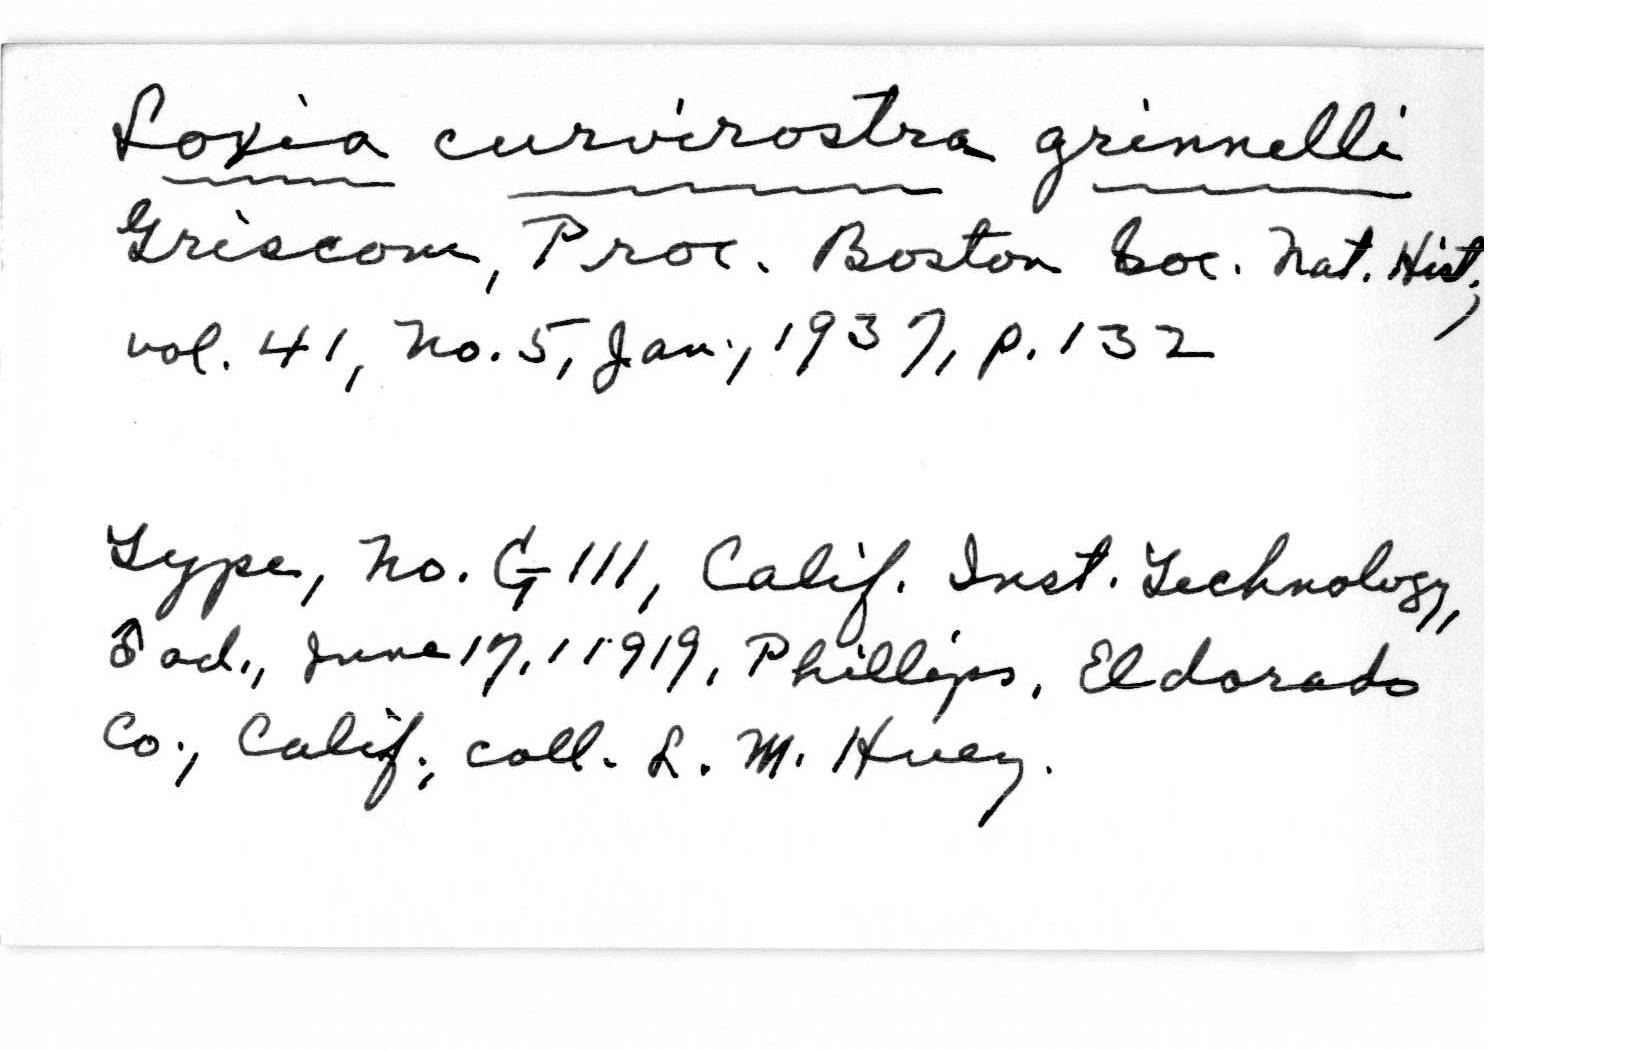 Loxia curvirostra grinnelli
Griscom, Proc. Boston Soc. Nat. Hist.,
vol. 41, No. 5, Jan., 1937, p. 132
Type, No. G 111, Calif. Inst. Technology,
♂ ad., June 17, 1919, Phillips, Eldorado
Co., Calif.; coll. L. M. Huey.